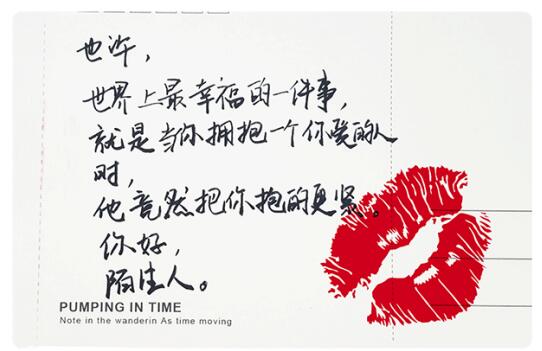 也许，
世界上最幸福的一件事，
就是当你拥抱一个你爱的人
时，
他竟然把你抱的更紧。
你好，
陌生人。
PUMPING IN TIME
Note in the wanderin As time moving